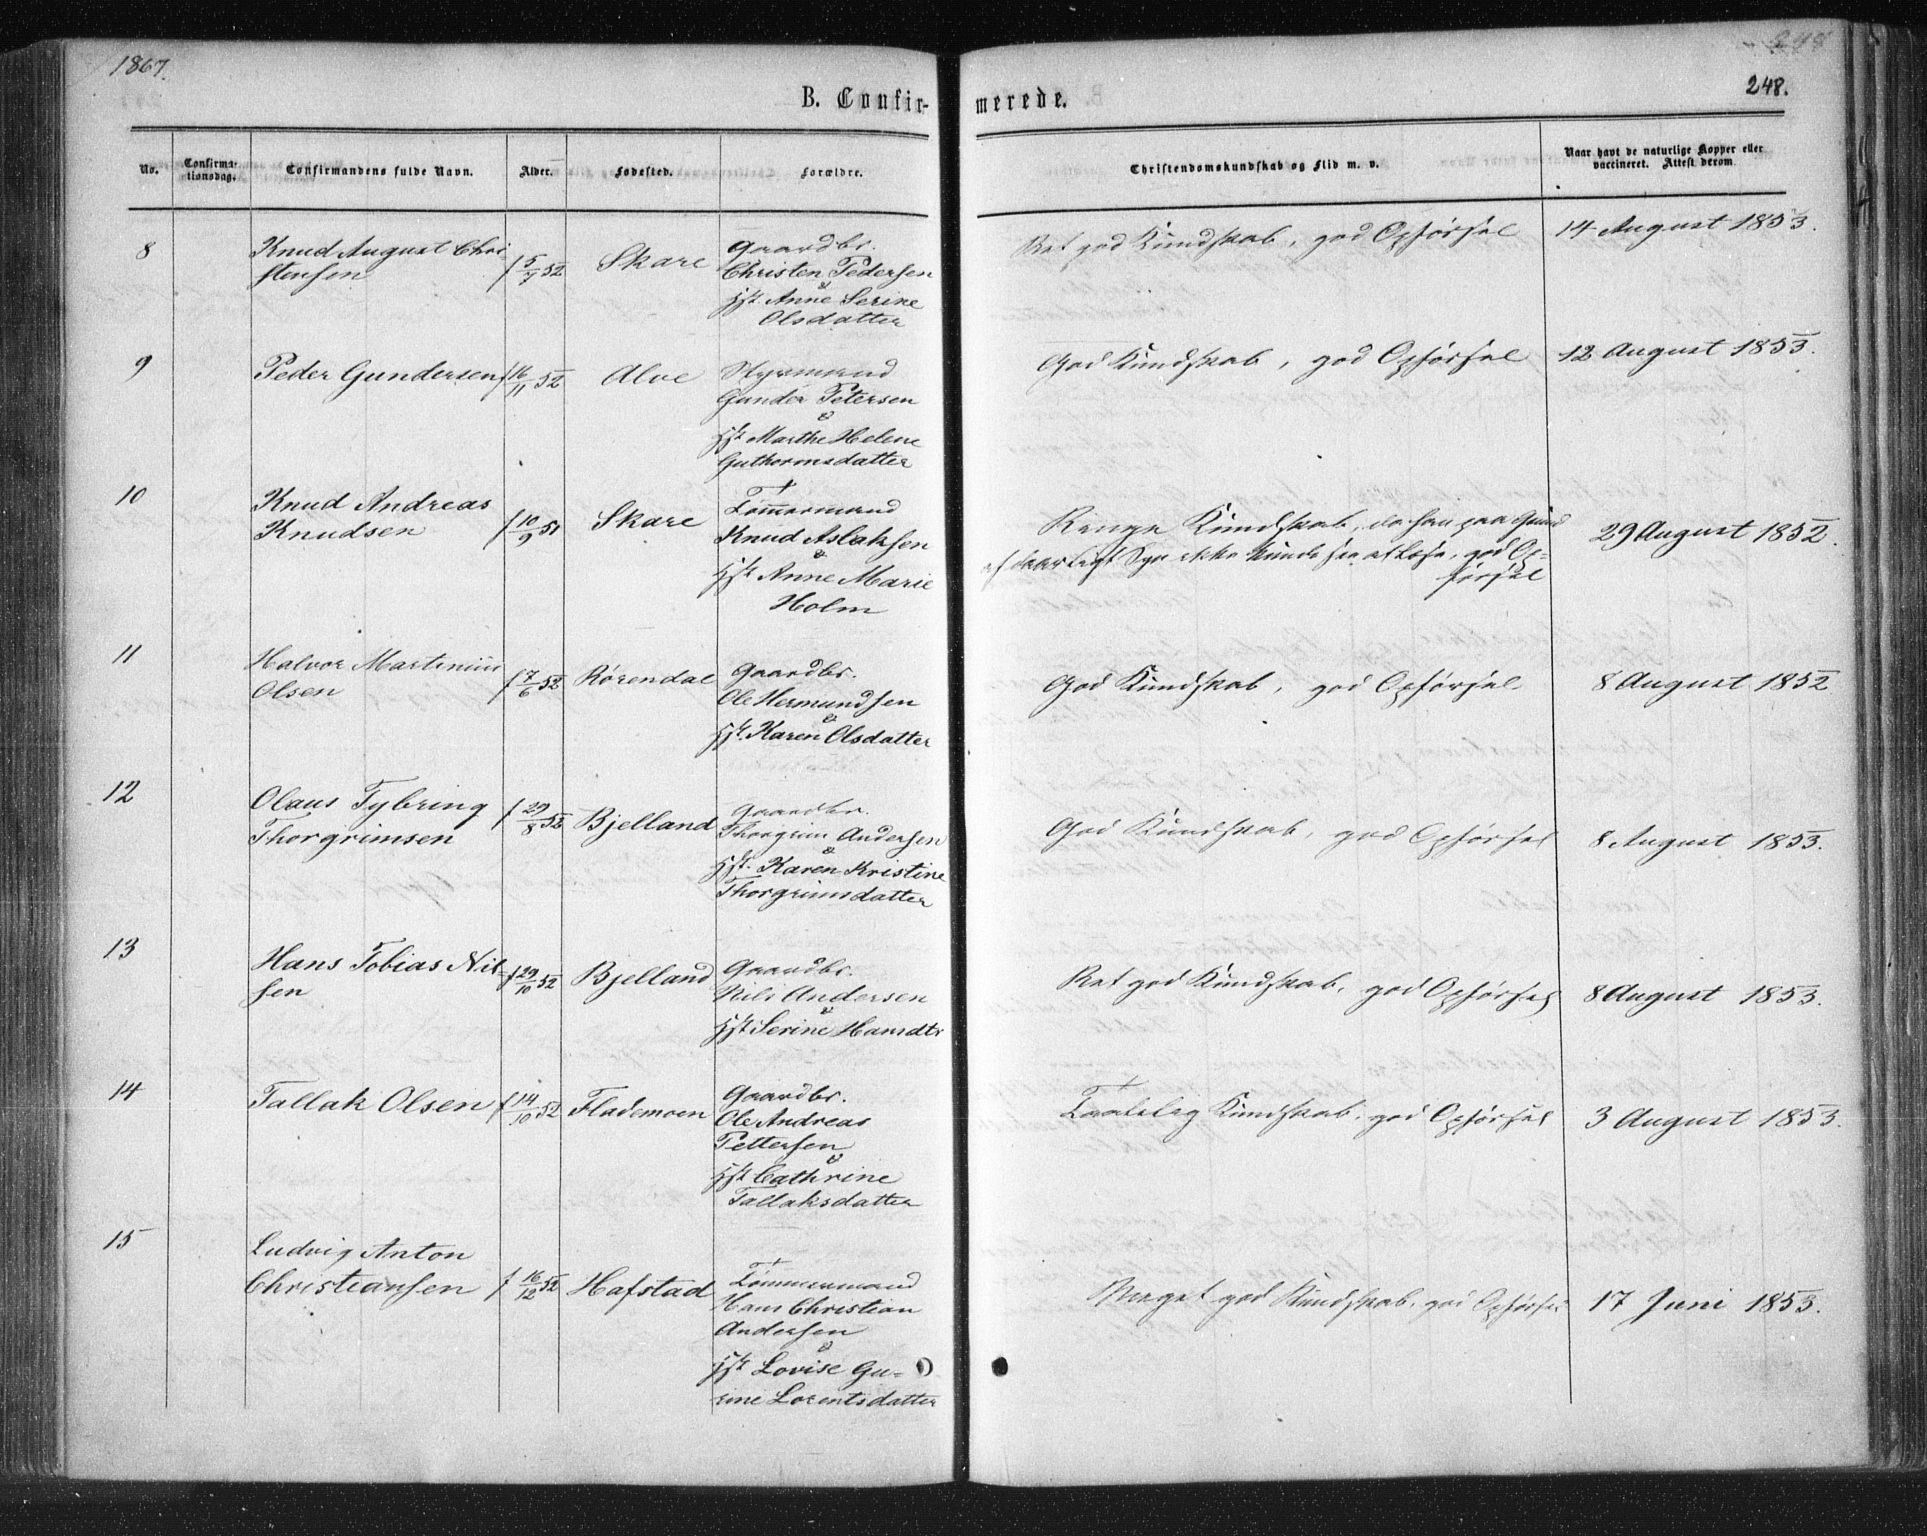 1867.
248
248.
B. Confir-
merede.
No.
Confirma-
tionsdag.
Confirmandens fulde Navn.
Alder.
Fødested.
Forældre.
Christendomskundskab og Flid m. v.
Naar havt de naturlige Kopper eller
vaccineret. Attest derom.
8
Knud August Chri
stensen
f 5/7 52
Skare
Gaardbr.
Christen Pedersen
&
Hst. Anne Serine
Olsdatter
Ret god Kundskab, god Opførsel
14 August 1853.
9
Peder Gundersen
f 16/11 52
Alve
Styrmand
Gunder Petersen
&
Hst Marthe Helene
Guthormsdatter
God Kundskab, god Opførsel
12 August 1853.
10
Knud Andreas
Knudsen
f 10/9 51
Skare
Tømmermand
Knud Aslaksen
&
Hst Anne Marie
Holm
Ringe Kundskab, da han paa Grund
af daarligt Syn ikke kunde see at læse, god Op-
førsel
29 August 1852.
11
Halvor Martinius
Olsen
f 7/6 52
Rørendal
Gaardbr.
Ole Hermundsen
&
Hst. Karen Olsdatter
God Kundskab, god Opførsel.
8 August 1852
12
Olaus Tybring
Thorgrimsen
f 29/8 52
Bjelland
Gaardbr.
Thorgrim Andersen
&
Hst. Karen Kristine
Thorgrimsdatter
God Kundskab, god Opførsel
8 August 1853.
13
Hans Tobias Nil
sen
f 29/10 52
Bjelland
Gaardbr.
Nils Andersen
&
Hst Serine Hansdtr
Ret god Kundskab, god Opførsel
8 August 1853.
14
Tallak Olsen
f 14/10 52
Flademoen
Gaardbr.
Ole Andreas
Pettersen
&
Hst Cathrine
Tallaksdatter
Taalelig Kundskab, god Opførsel
3 August 1853.
15
Ludvig Anton
Christiansen
f 16/12 52
Hafstad
Tømmermand
Hans Christian
Andersen
&
Hst Lovise Gu-
rine Lorentsdatter
Meget god Kundskab, god Opførsel
17 Juni 1853.